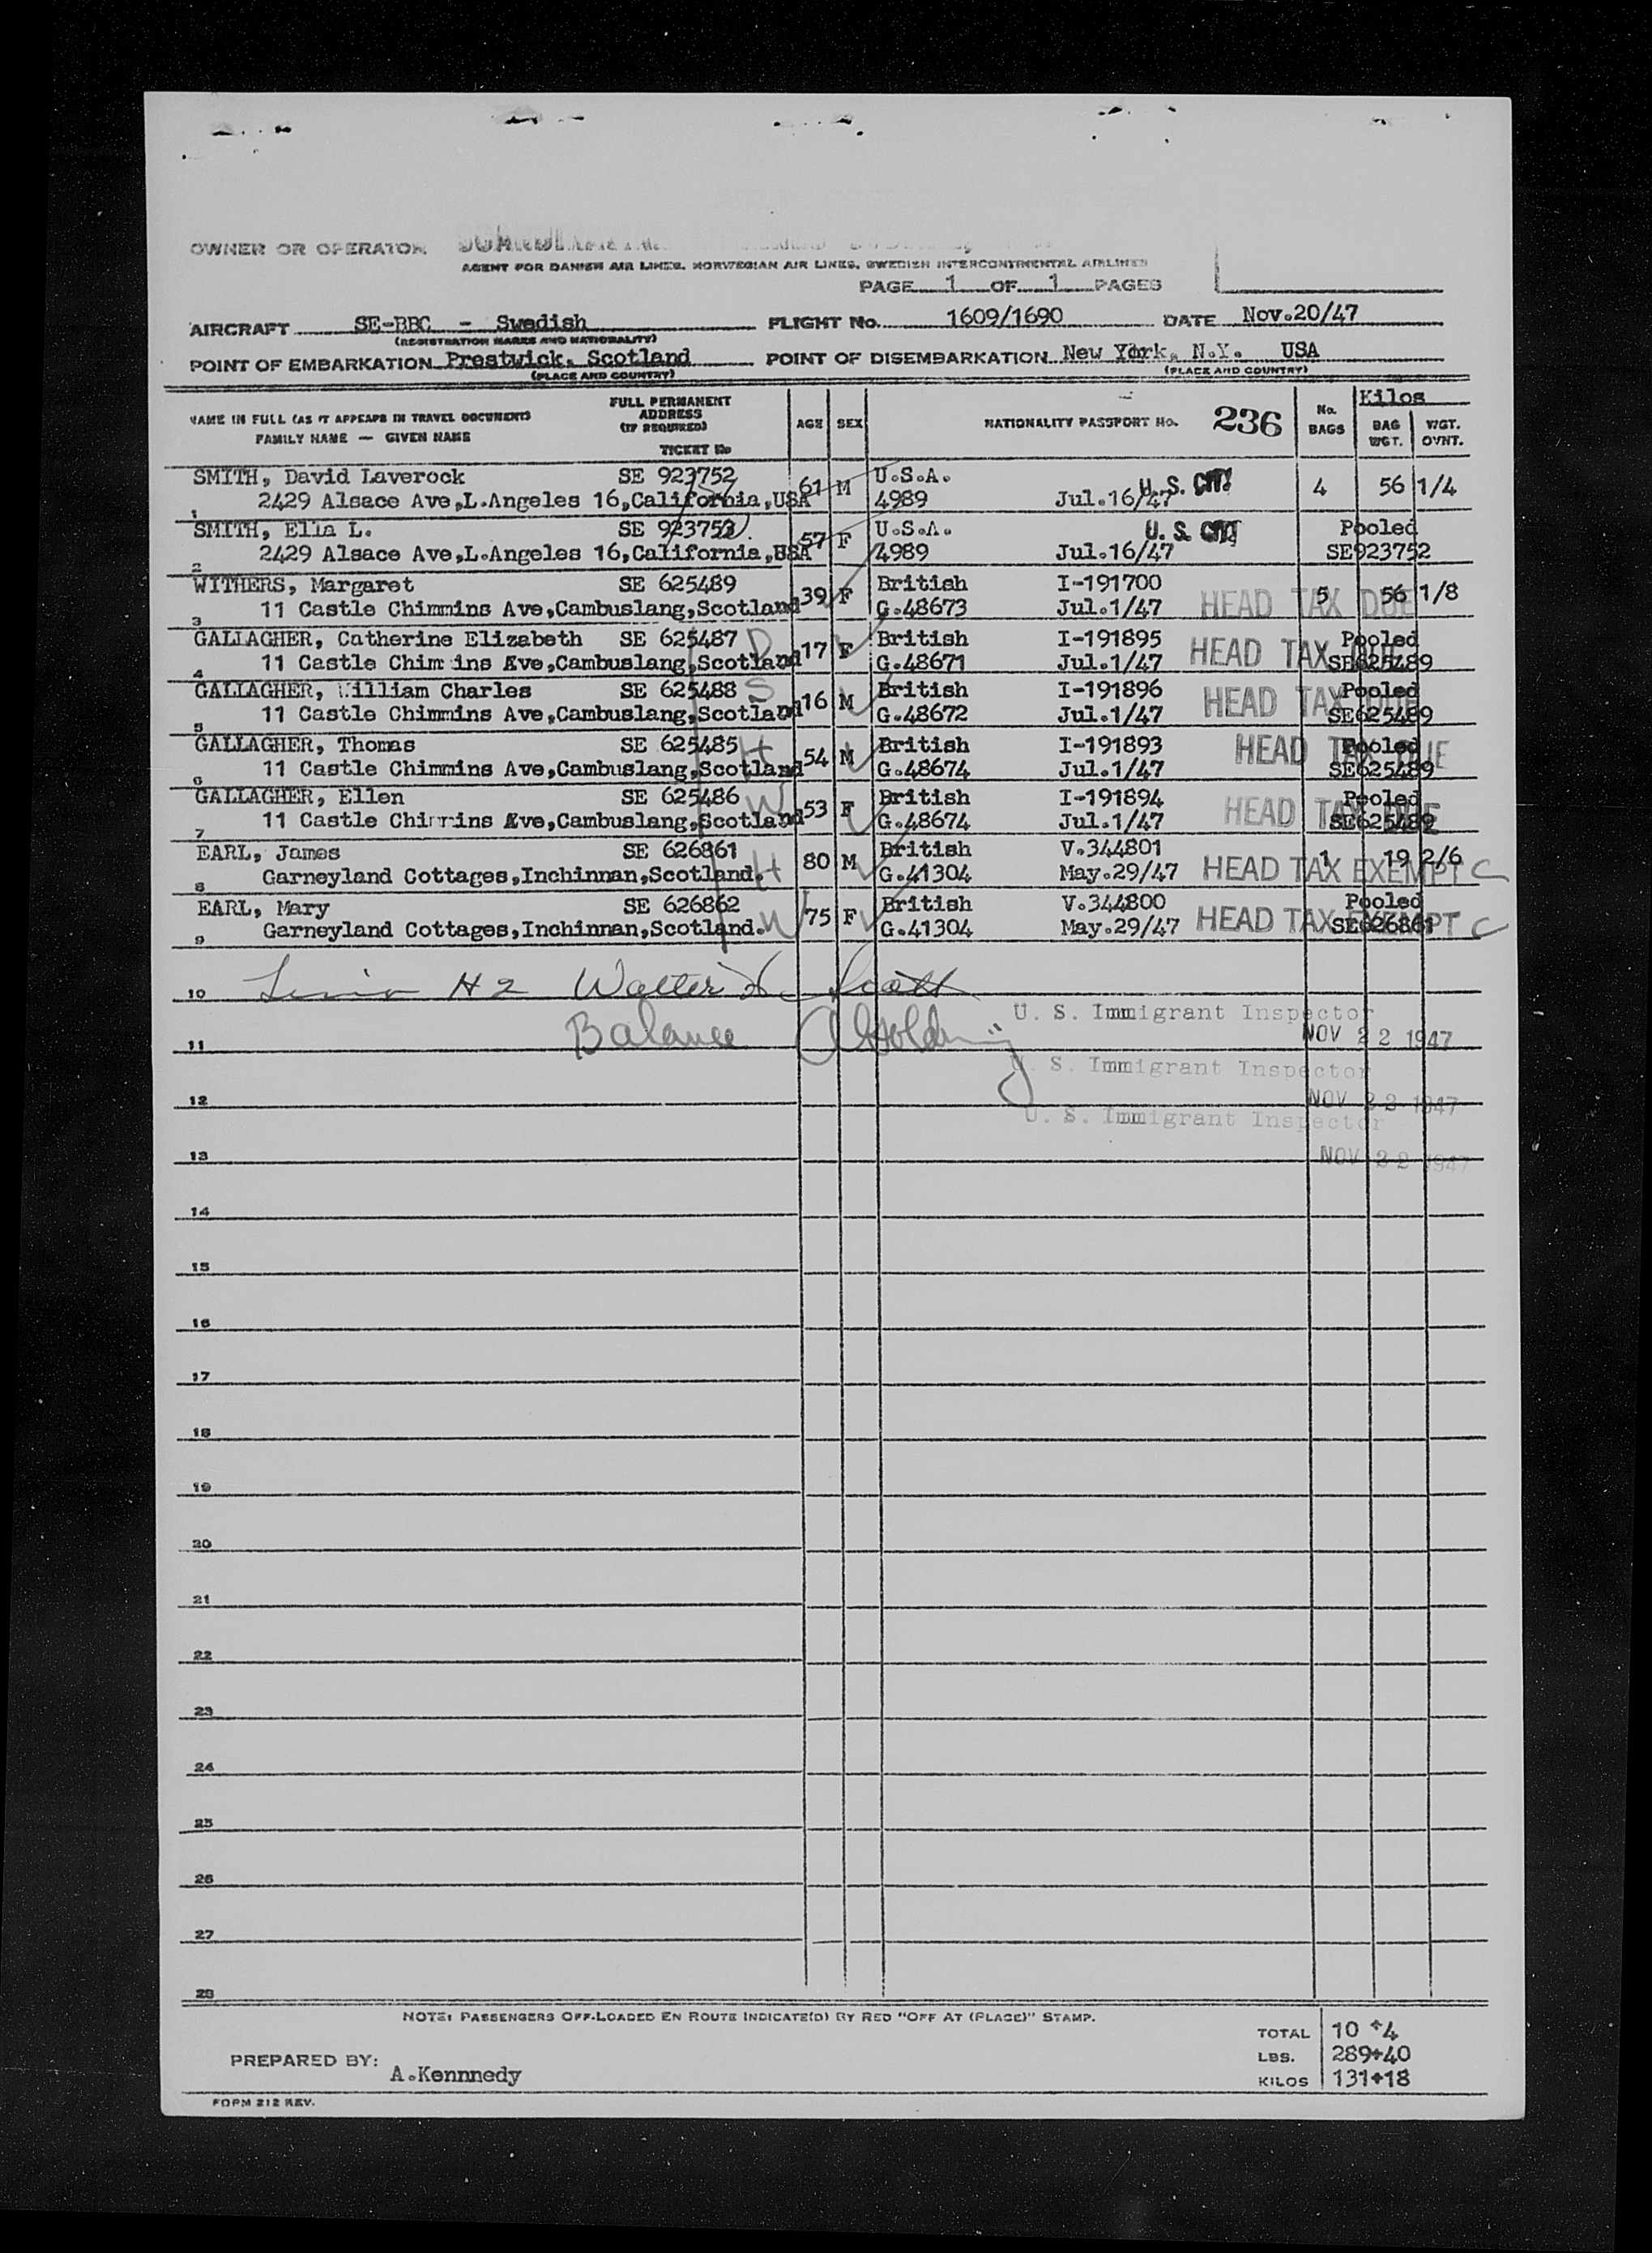 OWNER OR OPERATOR
AGENT FOR DANISH AIR LINES, NORWEGIAN AIR LINES, SWEDISH INTERCONTINENTAL AIRLINES
PAGE 1 OF 1 PAGES
AIRCRAFT SE-BBC - Swedish FLIGHT No. 1609/1690 DATE Nov.20/47
(REGISTRATION MARKS AND NATIONALITY)
POINT OF EMBARKATION Prestwick, Scotland POINT OF DISEMBARKATION New York, N.Y. USA
(PLACE AND COUNTRY) (PLACE AND COUNTRY)
NAME IN FULL (AS IT APPEARS IN TRAVEL DOCUMENT) FAMILY NAME — GIVEN NAME
FULL PERMANENT ADDRESS (IF REQUIRED) TICKET No
AGE SEX NATIONALITY PASSPORT No. 236 No. BAGS Kilos BAG WGT. WGT. OVNT.
SMITH, David Laverock SE 923752 61 M U.S.A. U. S. CIT. 4 56 1/4
1 2429 Alsace Ave,L.Angeles 16,California,USA 4989 Jul.16/47
SMITH, Ella L. SE 923753 57 F U.S.A. U. S. CIT Pooled
2 2429 Alsace Ave,L.Angeles 16,California,USA 4989 Jul.16/47 SE923752
WITHERS, Margaret SE 625489 39 F British I-191700 5 56 1/8
3 11 Castle Chimmins Ave,Cambuslang,Scotland G.48673 Jul.1/47 HEAD TAX DUE
GALLAGHER, Catherine Elizabeth SE 625487 D 17 F British I-191895 HEAD TAX DUE Pooled
4 11 Castle Chim ins Ave,Cambuslang,Scotland G.48671 Jul.1/47 SE625489
GALLAGHER, William Charles SE 625488 S 16 M British I-191896 HEAD TAX DUE Pooled
5 11 Castle Chimmins Ave,Cambuslang,Scotland G.48672 Jul.1/47 SE625489
GALLAGHER, Thomas SE 625485 H 54 M British I-191893 HEAD TAX DUE Pooled
6 11 Castle Chimmins Ave,Cambuslang,Scotland G.48674 Jul.1/47 SE625489
GALLAGHER, Ellen SE 625486 W 53 F British I-191894 HEAD TAX DUE Pooled
7 11 Castle Chimmins Ave,Cambuslang,Scotland G.48674 Jul.1/47 SE625489
EARL, James SE 626861 80 M British V.344801 1 19 2/6
8 Garneyland Cottages,Inchinnan,Scotland. H G.41304 May.29/47 HEAD TAX EXEMPT C
EARL, Mary SE 626862 75 F British V.344800 Pooled
9 Garneyland Cottages,Inchinnan,Scotland. W G.41304 May.29/47 HEAD TAX EXEMPT SE626861 C
10 H 2 Walter Scott
U. S. Immigrant Inspector
11 Balance NOV 22 1947
U. S. Immigrant Inspector
12 NOV 22 1947
U. S. Immigrant Inspector
13 NOV 22 1947
14
15
16
17
18
19
20
21
22
23
24
25
26
27
28
NOTE: PASSENGERS OFF-LOADED EN ROUTE INDICATE(D) BY RED "OFF AT (PLACE)" STAMP.
TOTAL 10 +4
LBS. 289+40
PREPARED BY: A.Kennnedy
KILOS 131+18
FORM 212 REV.